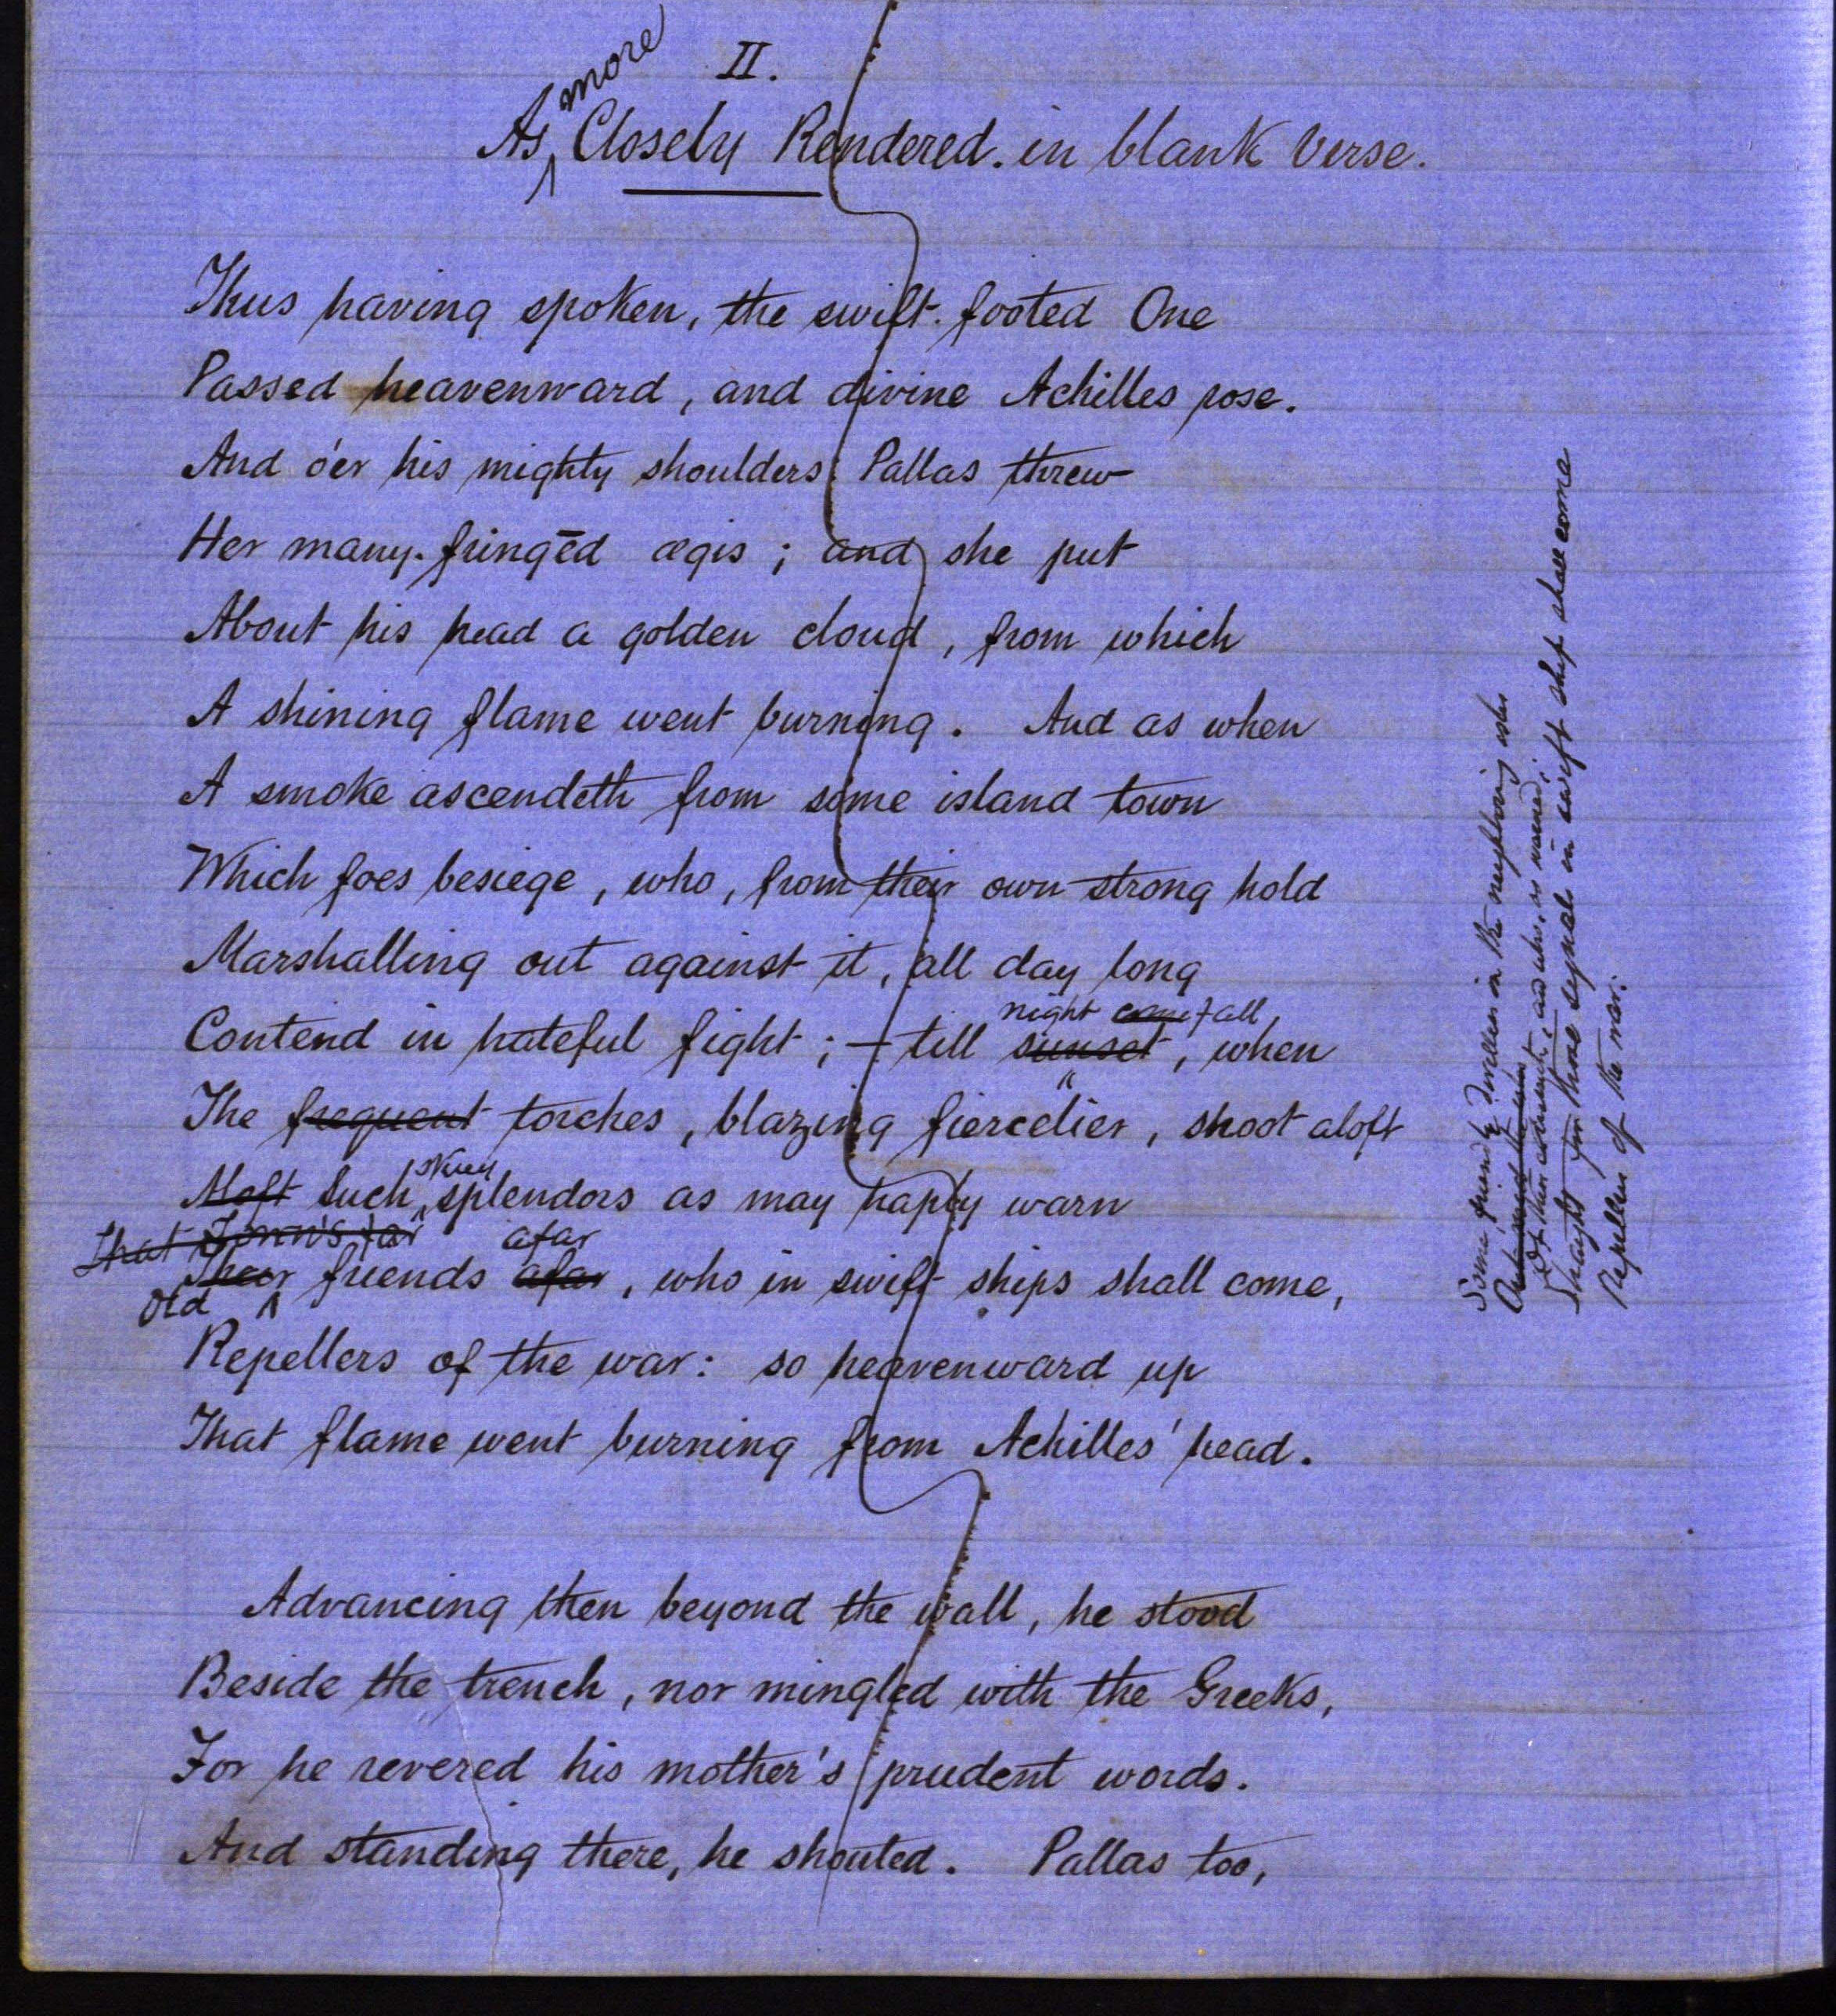 II.
As more Closely Rendered. in blank verse.
Thus having spoken, the swift-footed One
Passed heavenward, and divine Achilles rose.
And o'er his mighty shoulders Pallas threw
Her many-fringēd ægis; and she put
About his head a golden cloud, from which
A shining flame went burning. And as when
A smoke ascendeth from some island town
Which foes besiege, who, from their own strong hold
Marshalling out against it, all day long
night fall,
Contend in hateful fight; – till sunset, when
The frequent torches, blazing fiercelier, shoot aloft
Aloft Such splendors as may haply warn
That Town's far afar
Their friends afar, who in swift ships shall come,
Old
Repellers of the war: so heavenward up
That flame went burning from Achilles' head.
Advancing then beyond the wall, he stood
Beside the trench, nor mingled with the Greeks,
For he revered his mother's prudent words.
And standing there, he shouted. Pallas too,
Some friendly dweller in the neighboring isles
and who, as warned,
Straight from those signals in swift ship shall come
Repeller of the war: